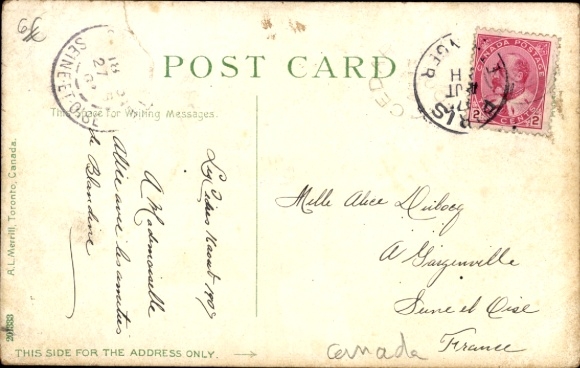 6f
SEINE ET OISE
18
27
POST CARD
This Space for Writing Messages.
Les Cèdres 16 août 1909
A Mademoiselle
Alice avec les amitiés
de Blandine
PARIS
CANADA POSTAGE
2 CENTS 2
Melle Alice Dubocq
A Gargenville
Seine et Oise
France
canada
A.L. Merrill, Toronto, Canada.
THIS SIDE FOR THE ADDRESS ONLY. →